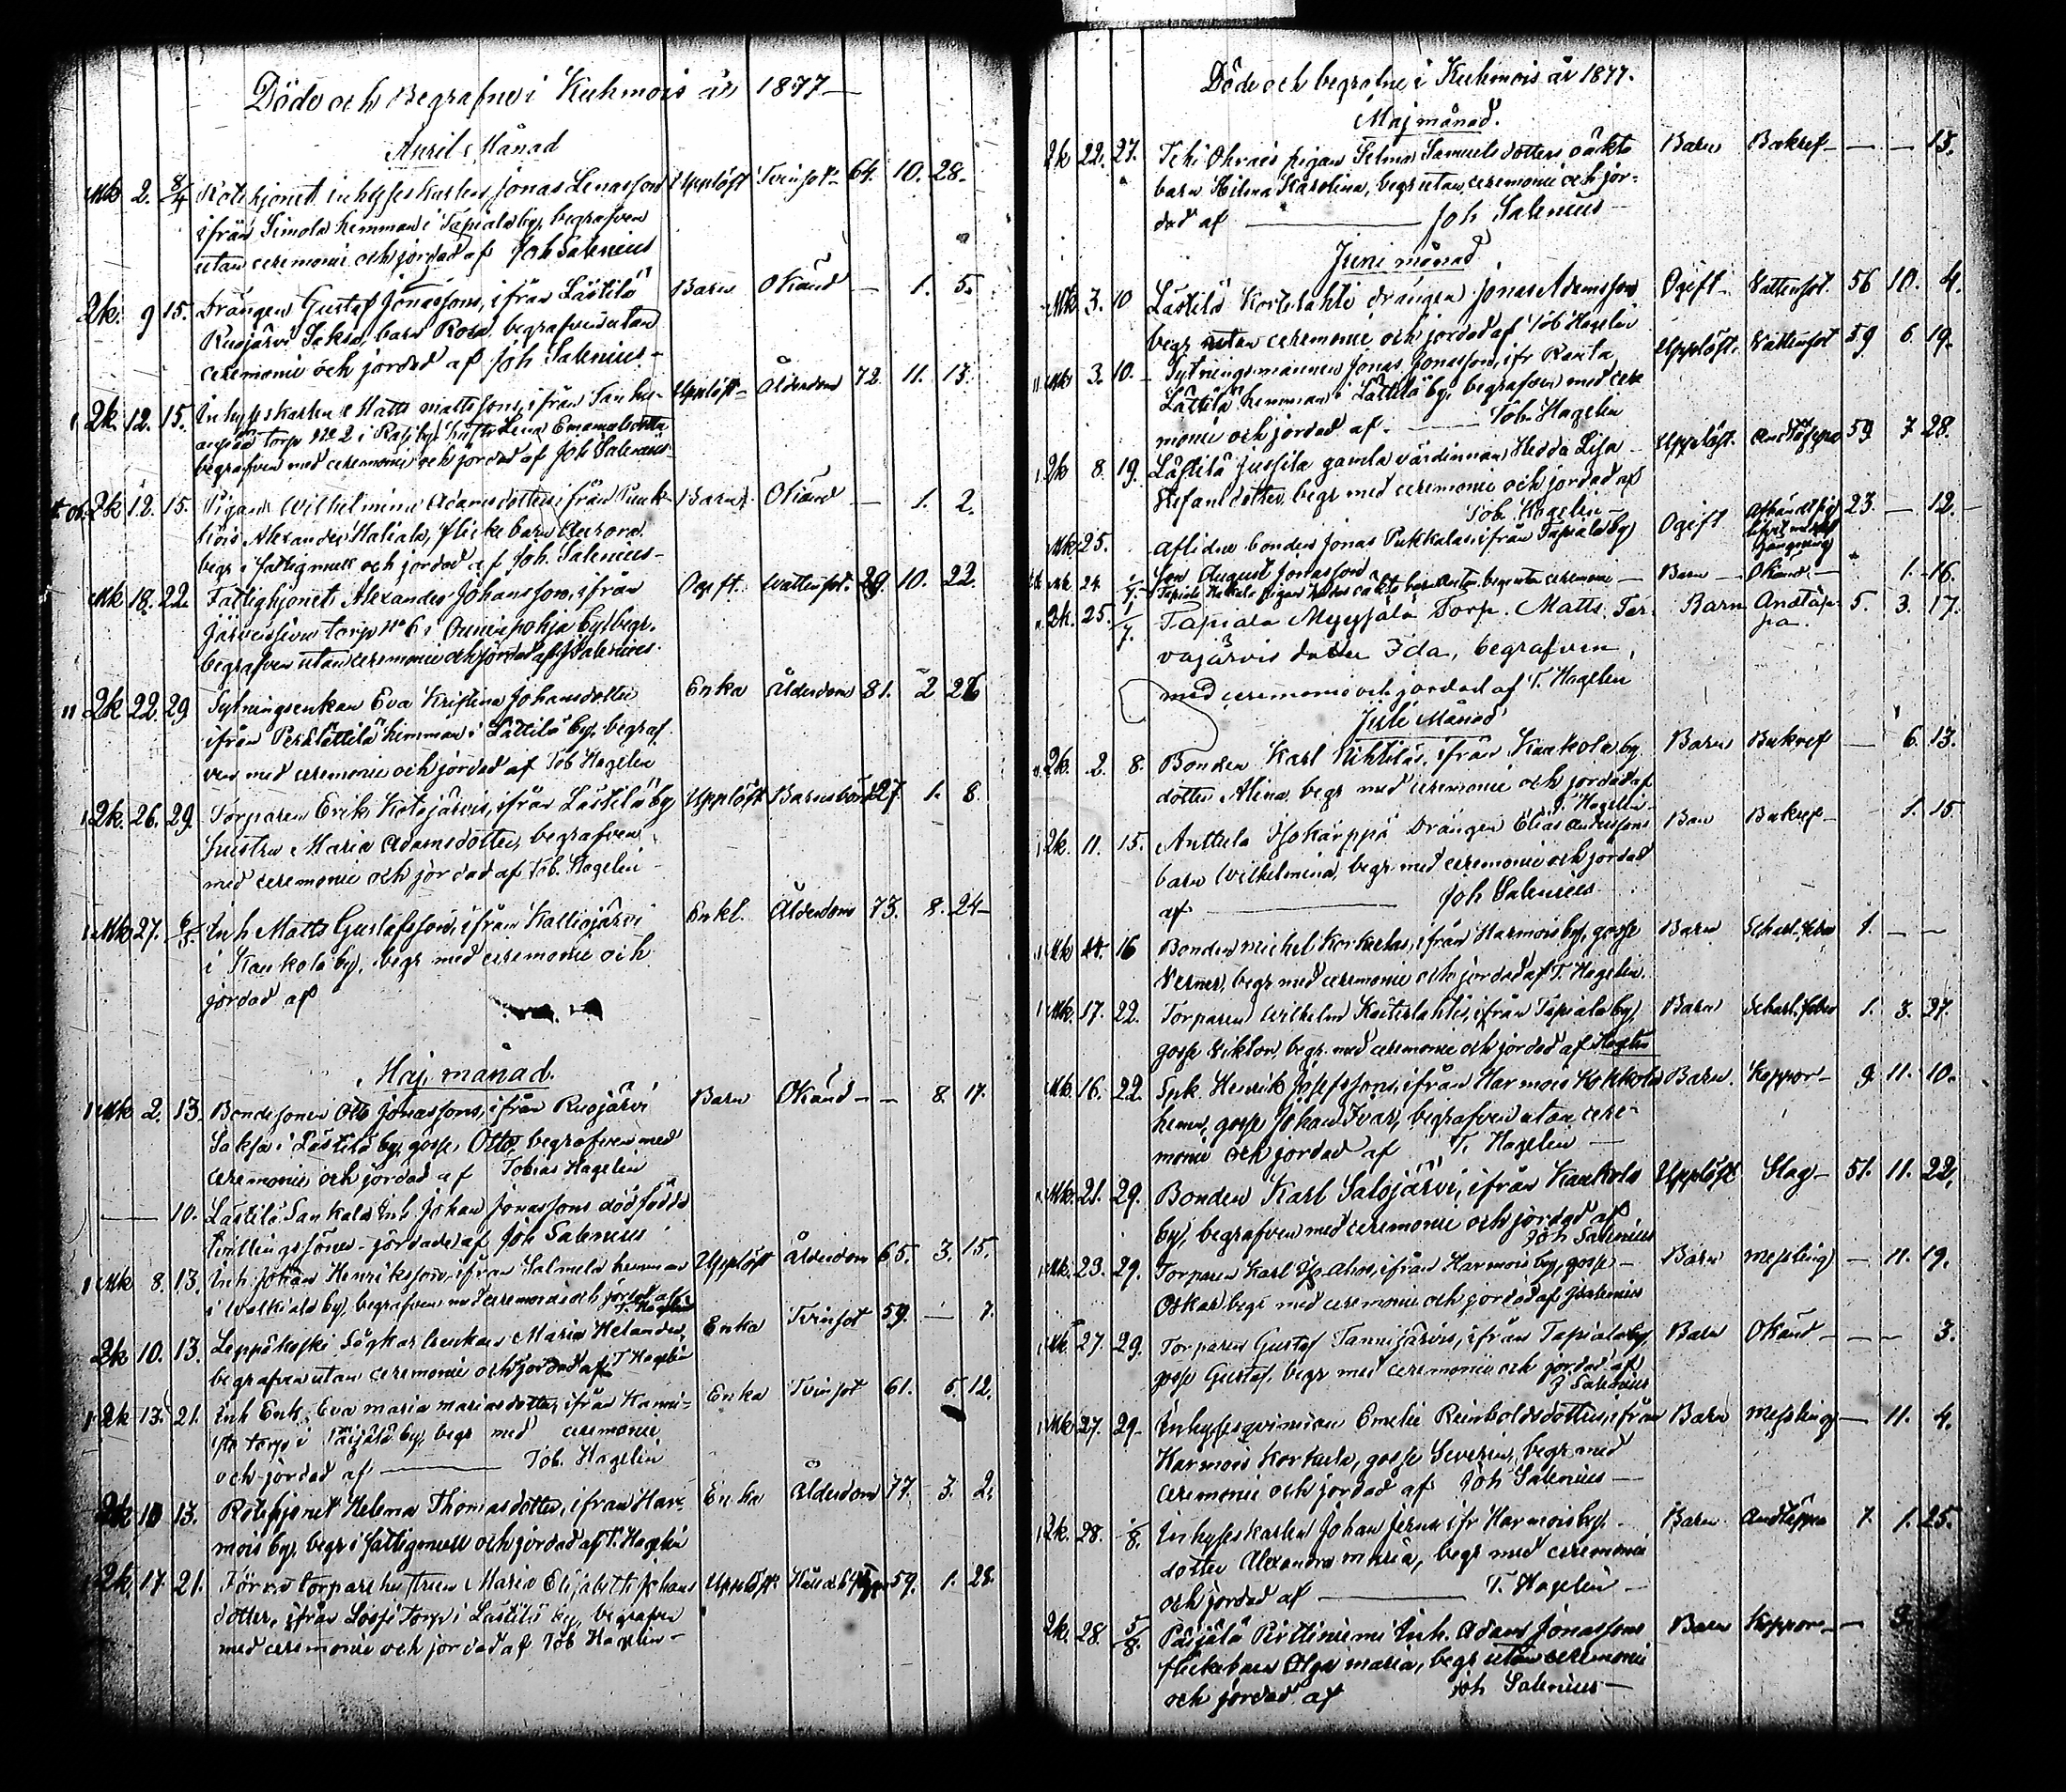 Döde och Begrafne i Kuhmois år 1877
April Månad
Mk 2. 8/4 Rotehjonet inhyseskarlen Jonas Lenasson Upplöst Tvinsot 64. 10. 28.
ifrån Simola hemman i Tapiala by, begrafven
utan ceremonie och jordad af Joh Salenius
2k. 9 15. Drängen Gustaf Jonassons, ifrån Lästilä Barn Okänd — 1. 5.
Ruojärvi Saksa, barn Rosa begrafven utan
ceremonie och jordad af Joh Salenius
2k. 12. 15. Inhyseskarlen Matts Mattssons, ifrån Upplöst Ålderdom 72. 11. 13.
torp No 2 i by, hustru Lena Emanuelsdotter
begrafven med ceremonie och jordad af Joh Salenius
2k 12. 15. Pigan Wilhelmina Adamsdotters ifrån Barn Okänd — 1. 2.
Alexander Haliala, flicke barn Aurora
begr i fattigmull och jordad af Joh. Salenius
Mk 18. 22. Fattighjonet Alexander Johansson, ifrån Ogift. Wattensot. 29. 10. 22.
torp No 6 i by begr.
begrafven utan ceremonie och jordad af J Salenius.
2k 22. 29 Sytningsenkan Eva Kristina Johansdotter Enka Ålderdom 81. 2 26
ifrån Perälättilä hemman i Lättilä by, begraf
ven med ceremonie och jordad af Tob Hagelin
2k. 26. 29. Torparen Erik Kotojärvis, ifrån Lästilä by Upplöst Barnsbörd 27. 1. 8.
hustru Maria Adamsdotter, begrafven
med ceremonie och jordad af Tob. Hagelin
Mk 27. 6/5. Inh Matts Gustafsson, ifrån Kalliojärvi Enkl. Ålderdom 73. 8. 24
i Kaukola by, begr med ceremonie och
jordad af
Maj månad.
Mk 2. 13. Bondesonen Otto Jonassons, ifrån Ruojärvi Barn Okänd — 8. 17.
Saksa i Lästilä by, gosse, Otto, begrafven med
ceremonie och jordad af Tobias Hagelin
10. Lästilä Inh Johan Jonassons dödfödda
tvillingssöner jordade af Joh Salenius
Mk 8. 13. Inh Johan Henriksson, ifrån Salmela hemman Upplöst Ålderdom 65. 3. 15.
i by, begrafven med ceremonie och jordad af
T. Hagelin
2k 10. 13. Leppäkoski Sågkarlenkan Maria Helander, Enka Tvinsot 59. — 7.
begrafven utan ceremonie och jordad af T Hagelin
2k 13. 21. Inh Enk. Eva Maria Mariasdotter, ifrån Enka Tvinsot 61. 5. 12.
torp i Päijälä by, begr med ceremonie
och jordad af — Tob. Hagelin
2k 10 13. Rotehjonet Helena Thomasdotter, ifrån Har= Enka Ålderdom 77. 3. 2.
mois by, begr i fattigmull och jordad af T. Hagelin
2k. 17. 21. Förra torpare hustrun Maria Elisabeth Johans Upplöst 59. 1. 28.
dotter, ifrån torp i Lästilä by, begrafven
med ceremonie och jordad af Tob Hagelin
Döde och begrafne i Kuhmois år 1877.
Maj månad.
2k 22. 27. pigan Selma Samuelsdotters oäkta Barn Bukref — — 13.
barn Hilma Karolina, begr utan ceremonie och jor=
dad af — Joh Salenius
Juni månad
Mk 3. 10 Lästilä drängen Jonas Adamsson Ogift Vattensot 56 10. 4.
begr utan ceremonie och jordad af Tob Hagelin
Mk 3. 10. Sytningsmannen Jonas Jonasson, ifr Ranta Upplöst. Vattensot 59 6. 19.
Lättilä hemman i Lättilä by, begrafven med cere
monie och jordad af. — Tob. Hagelin
2k 8. 19. Lästilä Jussila gamla värdinnan Hedda Lisa Upplöst. Andtäppa 59 7 28.
Stefansdotter, begr med ceremonie och jordad af
Tob. Hagelin
Mk 25. Aflidne bonden Jonas Pukkalas, ifrån Tapiala by Ogift 23. — 12.
son August Jonasson
Mk 24 1/7. Tapiala pigan oäkta barn Anton begr utan ceremonie Barn Okänd 1. 16.
2k. 25. 1/7. Tapiala Myyjälä Torp. Matts Ter Barn Andtäp 5. 3. 17.
pa
vajärvis dotter Ida, begrafven
med ceremonie och jordad af T. Hagelin
Juli Månad
2k. 2. 8. Bonden Karl ifrån Kaukola by Barn Bukref — 6. 13.
dotter Alina begr med ceremonie och jordad af
T. Hagelin
2k. 11. 15. Anttula Drängen Elias Anderssons Barn Bukref 1. 15.
barn Wilhelmina, begr med ceremonie och jordad
af — Joh Salenius
Mk 14. 16 Bonden Michel Korkulas, ifrån Harmois by, gosse Barn Scharl. feber 1. — —
Verner, begr med ceremonie och jordad af T. Hagelin.
Mk. 17. 22. Torparen Wilhelm ifrån Tapiala by, Barn Scharl. feber 1. 3. 27.
gosse Viktor, begr. med ceremonie och jordad af Hagelin
Mk. 16. 22. Spk. Henrik Josefssons, ifrån Harmois Kokkola Barn. Koppor 9. 11. 10.
hemn, gosse Johan Ivar, begrafven utan cere=
monie och jordad af T. Hagelin
Mk. 21. 29. Bonden Karl Salojärvi, ifrån Kaukola Upplöst Slag 51. 11. 22.
by, begrafven med ceremonie och jordad af
Joh Salenius
Mk. 23. 29. Torparen Karl ifrån Harmois by, gosse Barn Messling — 11. 19.
Oskar begr med ceremonie och jordad af J Salenius
Mk. 27. 29. Torparen Gustaf Tannijärvis, ifrån Tapiala by, Barn Okänd — — 3.
gosse Gustaf, begr med ceremonie och jordad af
J Salenius
Mk 27. 29. Inhysesqvinnan Emelie Reinholdsdotters, ifrån Barn Messling — 11. 4.
Harmois Korkula, gosse Severin, begr med
ceremonie och jordad af Joh Salenius
2k. 28. /8. Inhyseskarlen Johan ifr Harmois by, Barn Andtäppa 7. 1. 25.
dotter Alexandra Maria, begr med ceremonie
och jordad af — T. Hagelin
2k. 28. 5/8. Päijälä Pirttiniemi Inh. Adam Jonassons Barn Koppor —
flickebarn Olga Maria, begr utan ceremonie
och jordad af Joh Salenius